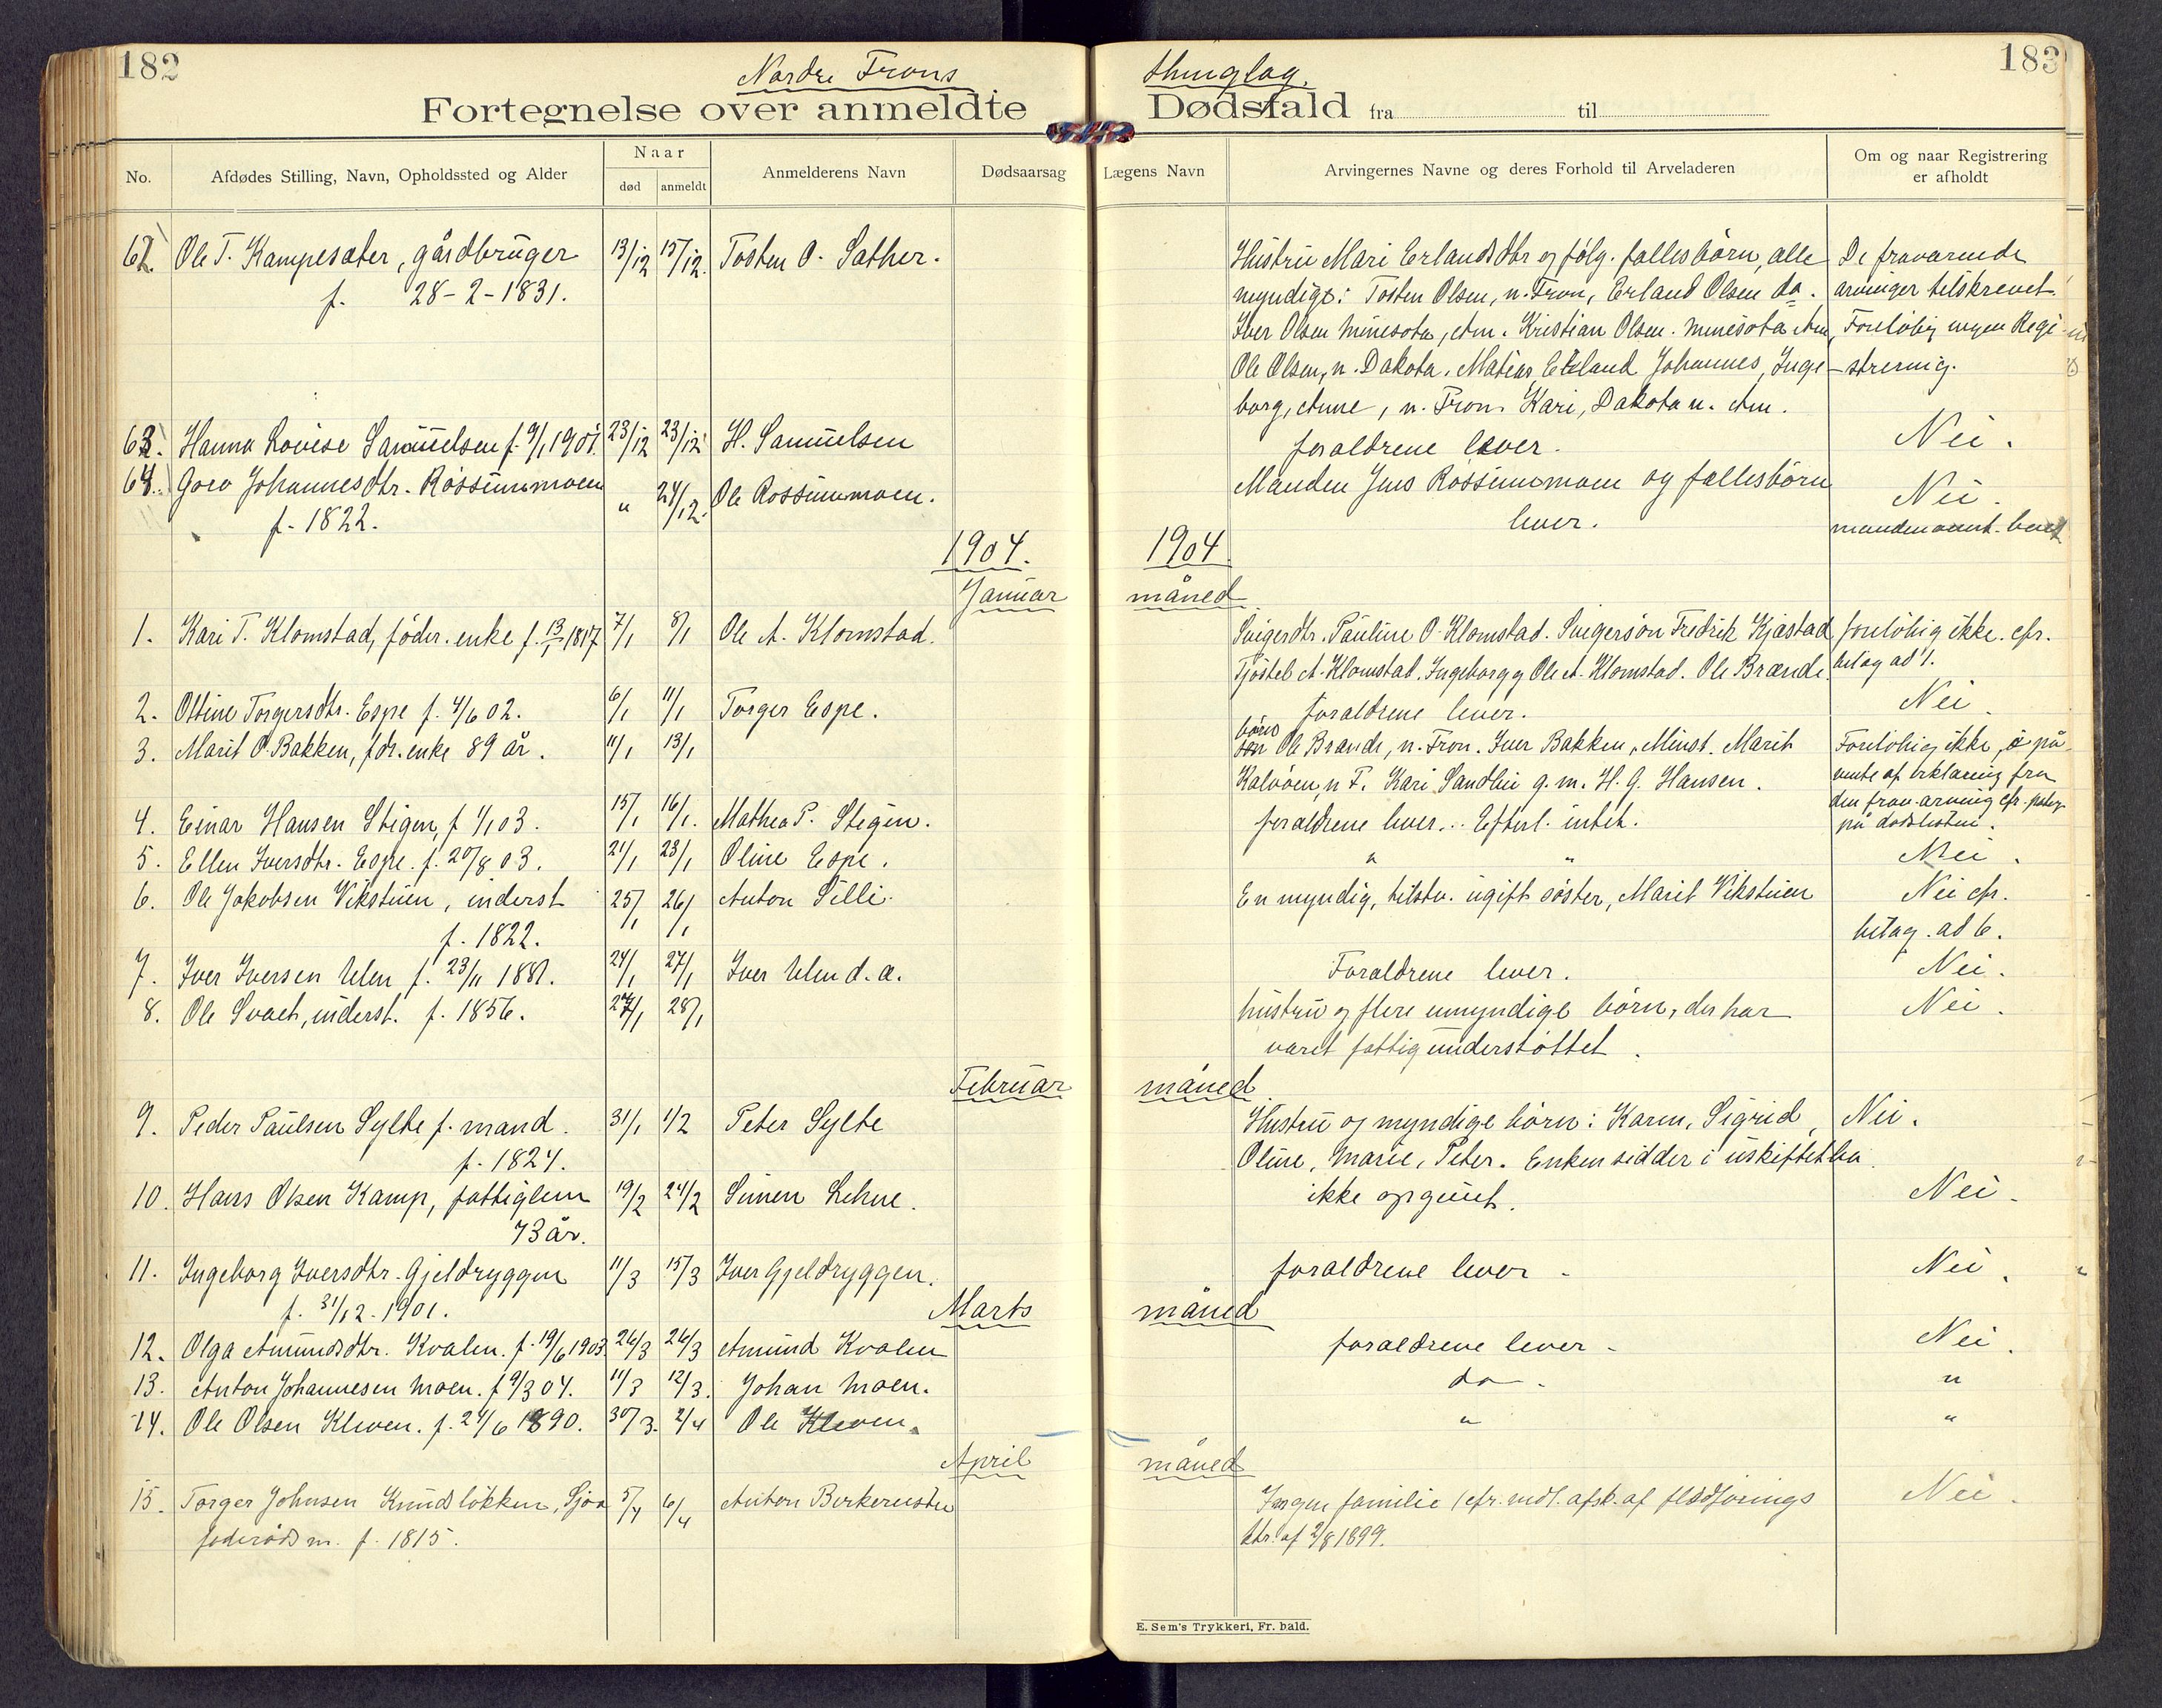 182
183
Nordre Frons thinglag.
Fortegnelse over anmeldte Dødsfald fra til
No.
Afdødes Stilling, Navn, Opholdssted og Alder
Naar
død
anmeldt
Anmelderens Navn
Dødsaarsag
Lægens Navn
Arvingernes Navne og deres Forhold til Arveladeren
Om og naar Registrering
er afholdt
62. Ole T. Kampesæter, gårdbruger 13/12 15/12. Tosten O. Sæther. Hustru Mari Erlandsdtr og følg. fællesbørn, alle De fraværende
f. 28-2-1831. myndige: Tosten Olsen, n. Fron, Erland Olsen do. arvinger tilskrevet.
Iver Olsen Minesota, Am. Kristian Olsen. Minesota Am, Foreløbig ingen Regi-
Ole Olsen, n. Dakota. Matias, Erland Johannes, Inge- strering.
borg, Anne, n. Fron. Kari, Dakota n. Am.
63. Hanna Lovise Samuelsen f. 9/1 1901. 23/12 23/12 H. Samuelsen forældrene lever. Nei.
64. Goro Johannesdtr. Rossummoen " 24/12. Ole Rossummoen. Manden Jens Rossummoen og fællesbørn Nei.
f. 1822. lever. manden overt. boet
1904. 1904
Januar måned
1. Kari T. Klomstad, føder. enke f. 13/1 1817 7/1 8/1 Ole A. Klomstad. Svigerdtr. Pauline O. Klomstad. Svigersøn Fredrik Kjæstad foreløbig ikke. cfr.
Tjøstel A. Klomstad. Ingeborg g Ole A. Klomstad. Ole Brænde. bilag ad 1.
2. Otine Torgersdtr. Espe f. 4/6 02. 6/1 11/1 Torger Espe. forældrene lever. Nei.
børn
3. Marit O. Bakken, fdr. enke 89 år. 11/1 13/1 søn Ole Brænde, n. Fron. Iver Bakken, Minst. Marit Foreløbig ikke, å på
Kalvøen, n F. Kari Sandbu g. m. H. G. Hansen. vente af erklæring fra
den frav. arving cfr. påtegn.
på dødslisten.
4. Einar Hansen Stigen, f 1/1 03. 15/1 16/1. Mathea P. Stigen. forældrene lever.. Efterl. intet.
5. Ellen Iversdtr. Espe. f. 20/8 03. 21/1 23/1 Oline Espe. " " Nei.
6. Ole Jakobsen Vikstuen, inderst 25/1 26/1 Anton Silli. En myndig, tilstv. ugift søster, Marit Vikstuen Nei cfr.
f. 1822. bilag. ad 6.
7. Iver Iversen Ulen f. 23/11 1881. 24/1 27/1 Iver Ulen d. æ. Forældrene lever. Nei.
8. Ole Svaet, inderst. f. 1856. 27/1 28/1 hustru og flere umyndige børn, der har Nei.
været fattigunderstøttet.
Februar måned
9. Peder Paulsen Sylte f. mand. 31/1 1/2 Peter Sylte Hustru og myndige børn: Karen, Sigrid, Nei.
f. 1824. Oline, Marie, Peter. Enken sidder i uskiftet bo
10. Hans Olsen Kamp, fattiglem 19/2 24/2 Simen Lehne. ikke opgivet. Nei.
73 år.
11. Ingeborg Iversdtr. Gjeldryggen 11/3 15/3 Iver Gjeldryggen. forældrene lever - Nei.
f. 31/12. 1901.
Marts måned
12. Olga Amundsdtr. Kvalen. f. 19/6 1903. 26/3 26/3 Amund Kvalen forældrene lever - Nei.
13. Anton Johannesen Moen. f 9/3 04. 11/3 12/3. Johan Moen. do. "
14. Ole Olsen Kleven. f. 24/6 1890. 30/3. 2/4 Ole Kleven. " "
April måned
15. Torger Johnsen Knudsløkken, Sjoa 5/4 6/4 Anton Berkerusten Ingen familie (cfr. vedl. afsk. af flødførings Nei.
føderådsm. f. 1815. ktr. af 2/8 1899.
E. Sem's Trykkeri, Fr. hald.